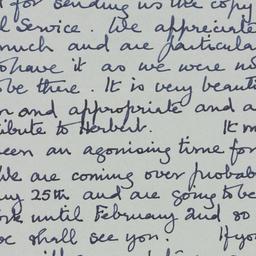 for sending us the copy
l Service. We appreciate
much and are particula
o have it as we were no
o be there. It is very beauti
and appropriate and a
ibute to Herbert. It m
een an agonising time for
We are coming over probab
ay 25th and are going to be
until February 2nd so
shall see you. If you